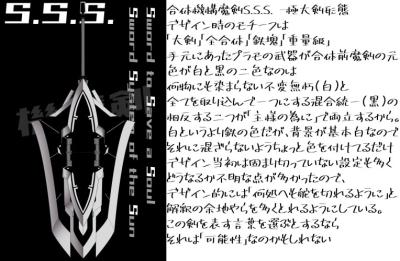 S.S.S.
Sword to Save a Soul
Sword System of the Sun
合体機構魔剣S.S.S. 極大剣形態
デザイン時のモチーフは
「大剣」「全合体」「鉄塊」「重量級」
手元にあったプラモの武器が合体前魔剣の元
色が白と黒の二色なのは
何物にも染まらない不変無朽(白)と
全てを取り込んで一つにする混合統一(黒)の
相反する二つが「主様の為に」で両立するから。
白というより銀の色だが、背景が基本白なので
それに混ざらないようちょっと色を付けてるだけ
デザイン当初は固まり切っていない設定も多く
どうなるか不明な点が多かったので、
デザイン的には「何処へも舵を切れるように」と
解釈の余地やらを多くとれるようにしている。
この剣を表す言葉を選ぶとするなら
それは「可能性」なのかもしれない